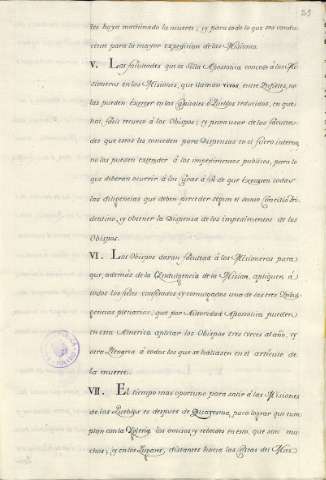 les haya machinado la muerte; y para todo lo que sea condu-
cente para la mayor expedicion de las Misiones.
V. Las facultades que la Silla Apostolica concede à los Mi-
cioneros en las Misiones, que llaman vivas, entre Infieles, no
las pueden exercer en las Ciudades ò Pueblos reducidos, en que
hai facil recurso à los Obispos; y para usar de las faculta-
des que estos les conceden para Dispensas en el fuero interno
no las pueden extender à los impedimentos publicos, para lo
que deberán ocurrir à los Curas à fin de que executen todas
las diligencias que deben preceder segun el santo Concilio Tri-
dentino, y obtener la Dispensa de los impedimentos de los
Obispos.
VI. Los Obispos darán facultad à los Misioneros para
que, además de la Indulgencia de la Mision, apliquen à
todos los fieles confesados y comulgados una de las tres Indul-
gencias plenarias, que por Autoridad Apostolica pueden
en esta America aplicar los Obispos tres veces al año, y
otra Plenaria à todos los que se hallasen en el articulo de
la muerte.
VII. El tiempo mas oportuno para salir à las Misiones
de los Pueblos es despues de Quaresma, para lograr que cum-
plan con la Iglesia los omisos y rebeldes en esta, que son mu-
chos; y entre
distantes hacia las Costas del Mar